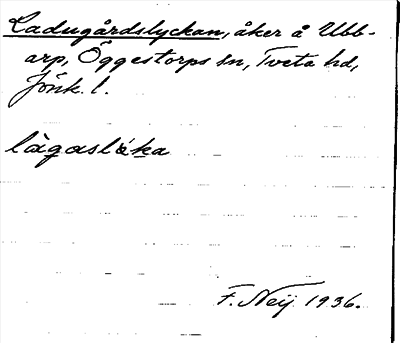 Ladugårdslyckan, åker å Ubb-
arp, Öggestorps sn, Tveta hd,
Jönk. l.
làgaslǿka
F. Neij 1936.